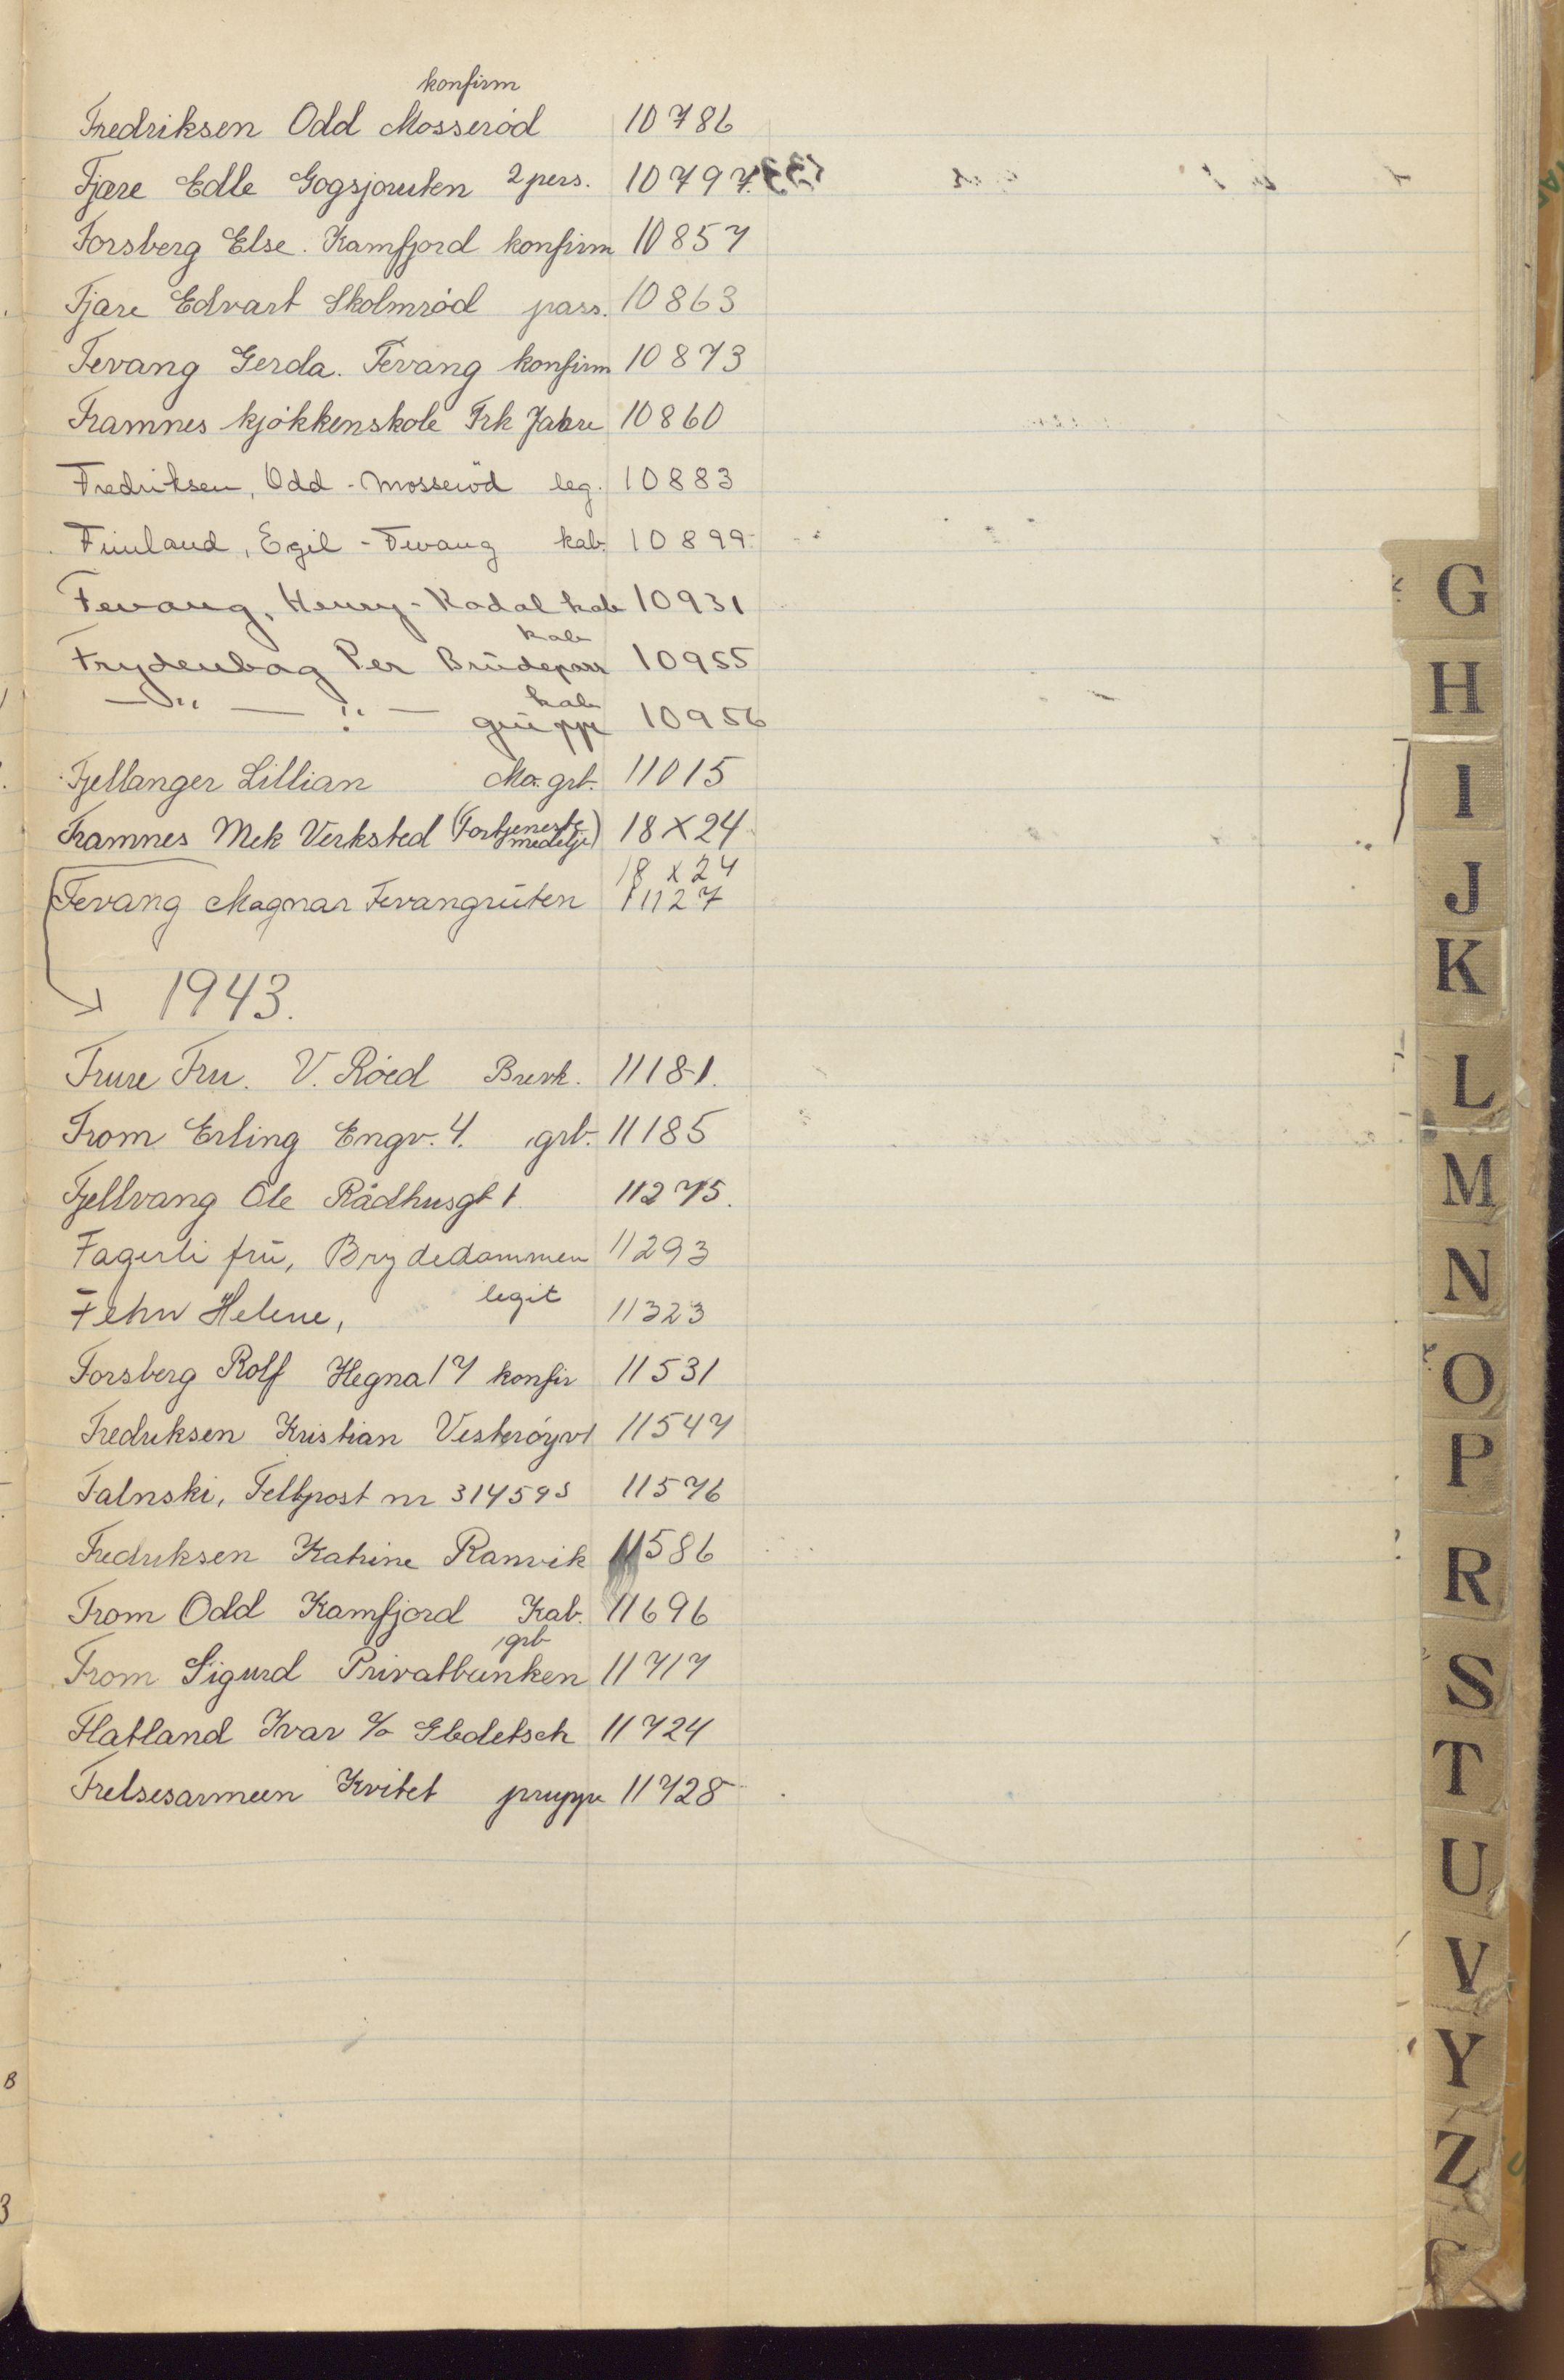 konfirm
Fredriksen Odd Mosseród 10786
Fjære Edle Gogsjøruten 2 pers. 10797.
Forsberg Else. Kamfjord konfirm 10857
Fjære Edvart Skolmród pass. 10863
Fevang Gerda. Fevang konfirm 10873
Framnes kjókkenskole Frk Jahre 10860
Fredriksen, Odd - Mosseröd leg. 10883
Finland, Egil - Fevang kab. 10899
Fevang, Henry - Kodal kab 10931
kab
Frydenbag Per Brūdepar 10955
— " — " — kab
grūppe 10956
Fjellanger Lillian Ma. grb. 11015
Framnes Mek Verksted (Fortjeneste medelje) 18 X 24
18 x 24
Fevang Magnar Fevangrūten 11127
1943.
Frure Fru. V. Róed Brevk. 11181.
From Erling Engv. 4. grb. 11185
Fjellvang Ole Rådhusgt 1 11275.
Fagerli frū, Brydedammen 11293
legit
Fehn Helene, 11323
Forsberg Rolf Hegna 17 konfir 11531
Fredriksen Kristian Vesteróyvt 11547
Falnski, Feltpost nr 31459S 11576
Fredriksen Katrine Ranvik 11586
From Odd Kamfjord Kab. 11696
grb
From Sigurd Privatbanken 11717
Flatland Ivar c/o 11724
Frelsesarmeen Kvitet gruppe 11728
G
H
I
J
K
L
M
N
O
P
R
S
T
U
V
Y
Z